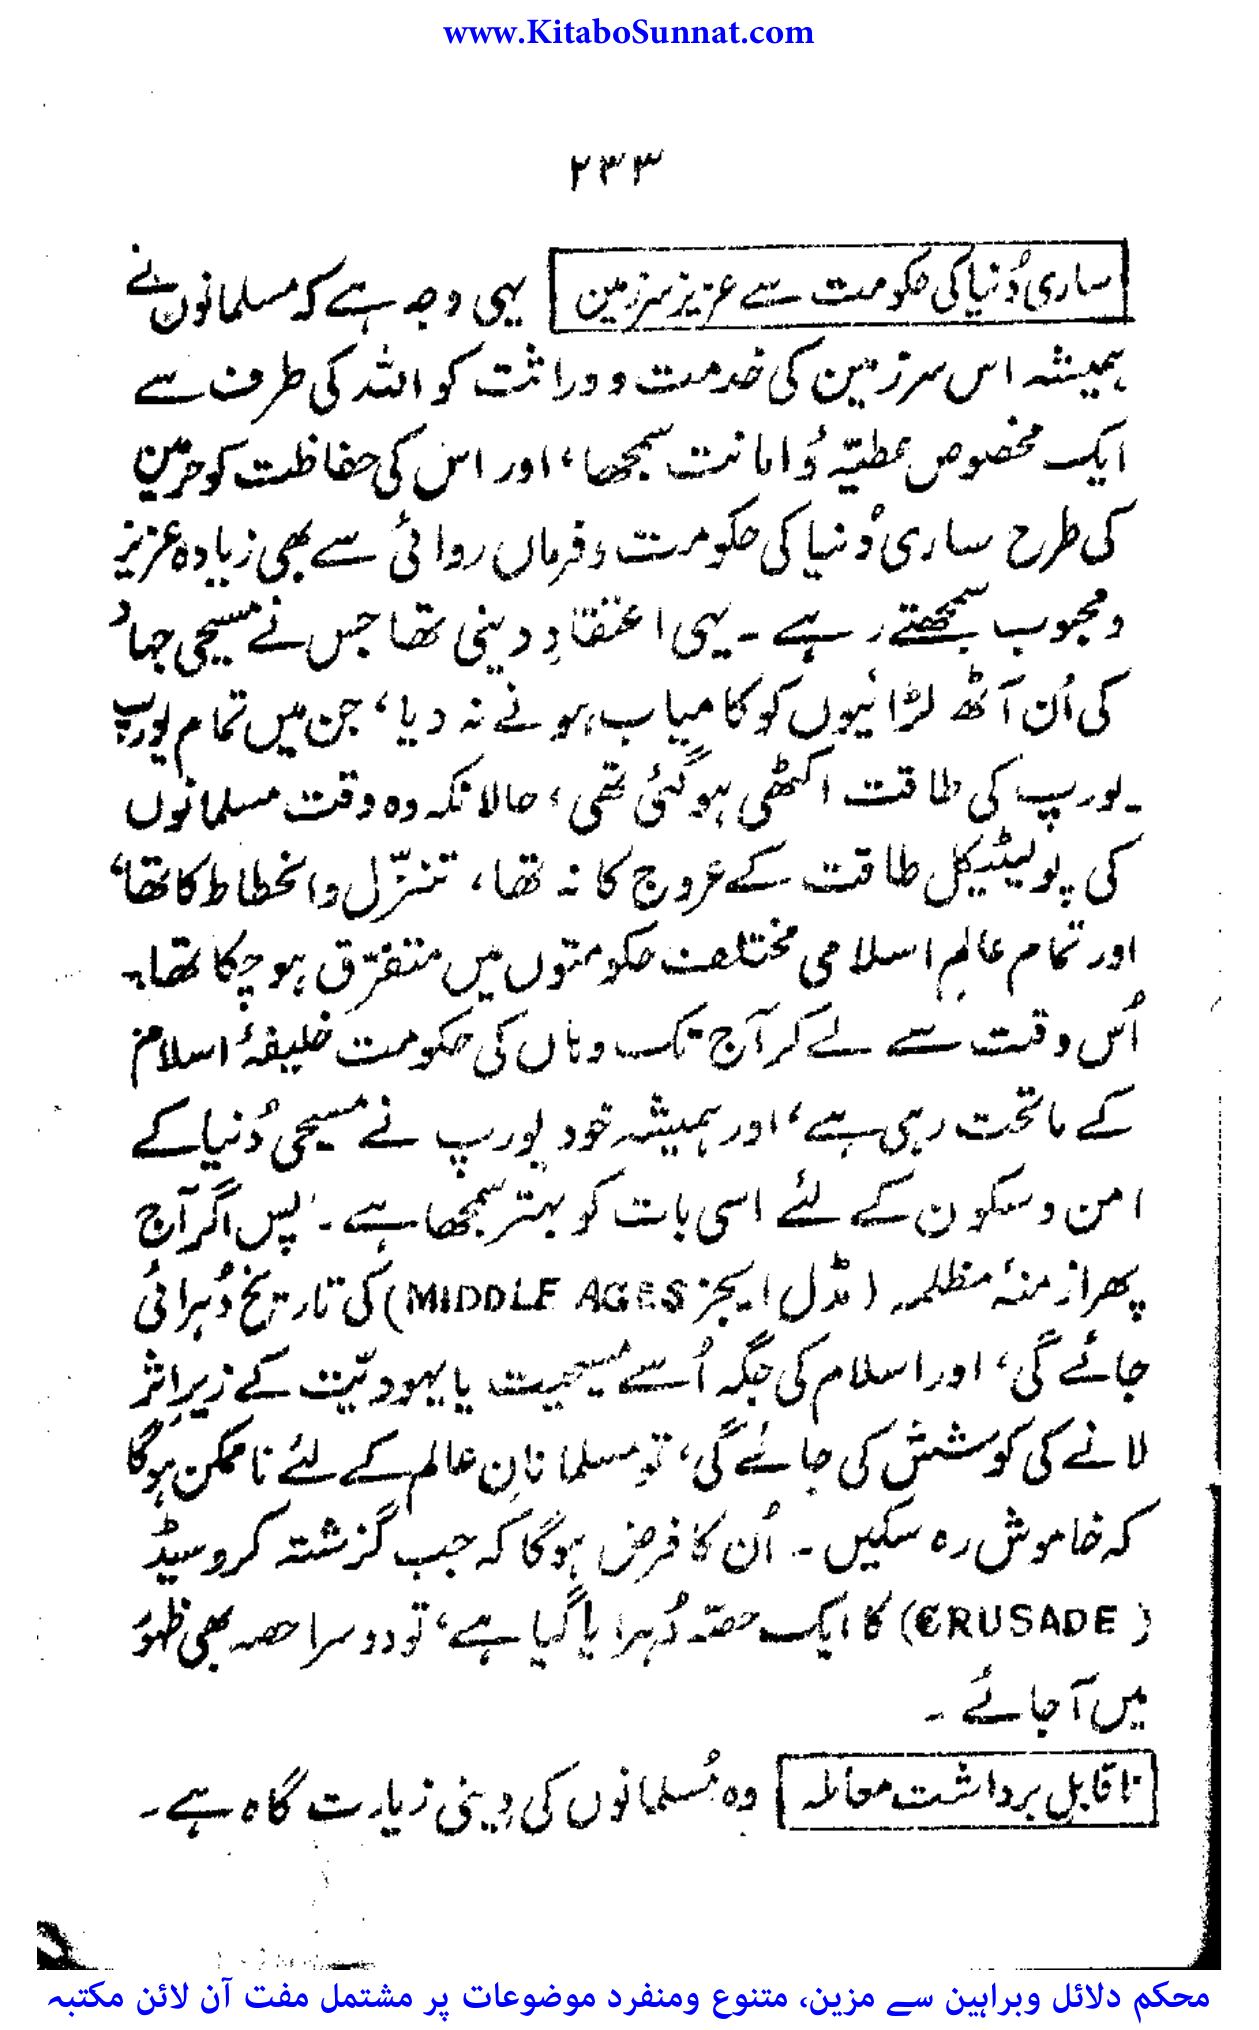 www.KitaboSunnat.com
۲۳۳
ساری دُنیا کی حکومت سے عزیز سرزمین یہی وجہ ہے کہ مسلمانوں نے
ہمیشہ اس سرزمین کی خدمت و وراثت کو اللہ کی طرف سے
ایک مخصوص عطیّہ و امانت سمجھا، اور اس کی حفاظت کو حرمین
کی طرح ساری دُنیا کی حکومت و فرماں روائی سے بھی زیادہ عزیز
و محبوب سمجھتے رہے ۔ یہی اعتقادِ دینی تھا جس نے مسیحی جہاد
کی اُن آٹھ لڑائیوں کو کامیاب ہونے نہ دیا، جن میں تمام یورپ
یورپ کی طاقت اکٹھی ہو گئی تھی، حالانکہ وہ وقت مسلمانوں
کی پولیٹیکل طاقت کے عروج کا نہ تھا، تنزّل و انحطاط کا تھا،
اور تمام عالمِ اسلامی مختلف حکومتوں میں متفرّق ہو چکا تھا۔
اُس وقت سے لے کر آج تک وہاں کی حکومت خلیفۂ اسلام
کے ماتحت رہی ہے، اور ہمیشہ خود یورپ نے مسیحی دُنیا کے
امن و سکون کے لئے اسی بات کو بہتر سمجھا ہے ۔ پس اگر آج
پھر ازمنۂ مظلمہ (مڈل ایجز MIDDLE AGES) کی تاریخ دُہرائی
جائے گی، اور اسلام کی جگہ اُسے مسیحیت یا یہودیّت کے زیرِ اثر
لانے کی کوشش کی جائے گی، تو مسلمانانِ عالم کے لئے ناممکن ہو گا
کہ خاموش رہ سکیں ۔ اُن کا فرض ہو گا کہ جب گزشتہ کروسیڈ
(CRUSADE) کا ایک حصّہ دُہرایا گیا ہے، تو دوسرا حصہ بھی ظہور
میں آ جائے ۔
ناقابلِ برداشت معاملہ وہ مُسلمانوں کی دینی زیارت گاہ ہے ۔
محکم دلائل وبراہین سے مزین، متنوع ومنفرد موضوعات پر مشتمل مفت آن لائن مکتبہ